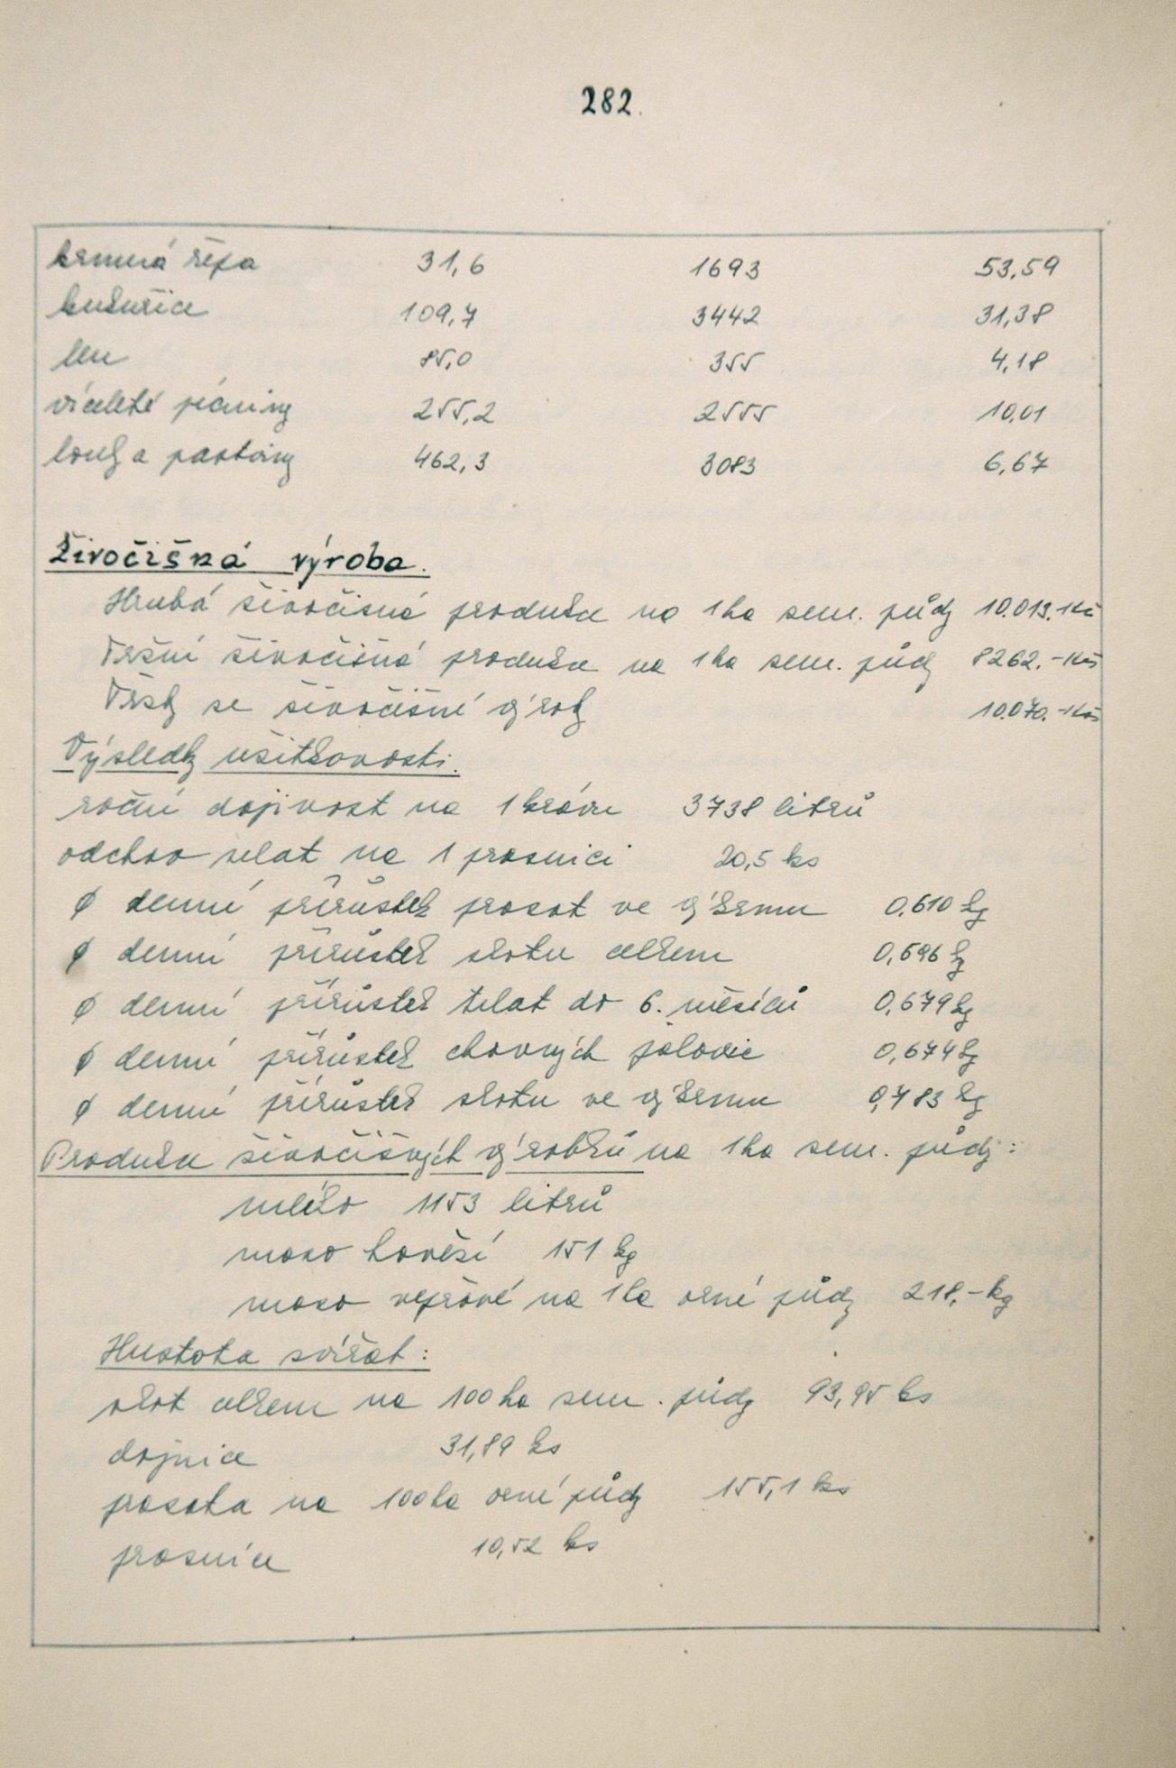 282.
krmná řepa 31,6 1693 53,59
kukuřice 109,7 3442 31,38
len 85,0 355 4,18
víceleté pícniny 255,2 2555 10,01
louky a pastviny 462,3 3083 6,67
Živočišná výroba.
Hrubá živočišná produkce na 1 ha zem. půdy 10.013.-Kčs
Tržní živočišná produkce na 1 ha zem. půdy 8262.-Kčs
Tržby ze živočišné výroby 10.070.-Kčs
Výsledky užitkovosti.
roční dojivost na 1 krávu 3738 litrů
odchov selat na 1 prasnici 20,5 ks
ø denní přírůstek prasat ve výkrmu 0.610 kg
ø denní přírůstek skotu celkem 0,696 kg
ø denní přírůstek telat do 6. měsíců 0,679 kg
ø denní přírůstek chovných jalovic 0,674 kg
ø denní přírůstek skotu ve výkrmu 0,783 kg
Produkce živočišných výrobků na 1 ha zem. půdy:
mléko 1153 litrů
maso hovězí 151 kg
maso vepřové na 1 ha orné půdy 218,- kg
Hustota zvířat:
skot celkem na 100 ha zem. půdy 93,95 ks
dojnice 31,89 ks
prasata na 100 ha orné půdy 155,1 ks
prasnice 10,52 ks